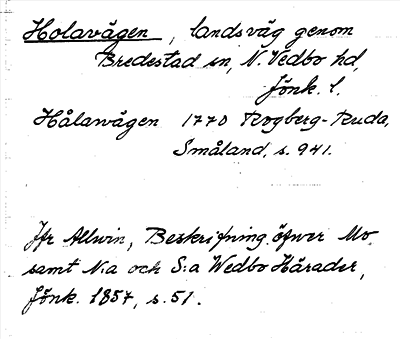 Holavägen, landsväg genom
Bredestad sn, N. Vedbo hd,
Jönk. l.
Hålawägen 1770 Rogberg-Ruda,
Småland, s. 941.
Jfr Allvin, Beskrifning öfver Mo
samt N:a och S:a Wedbo Härader,
Jönk. 1857, s. 51.